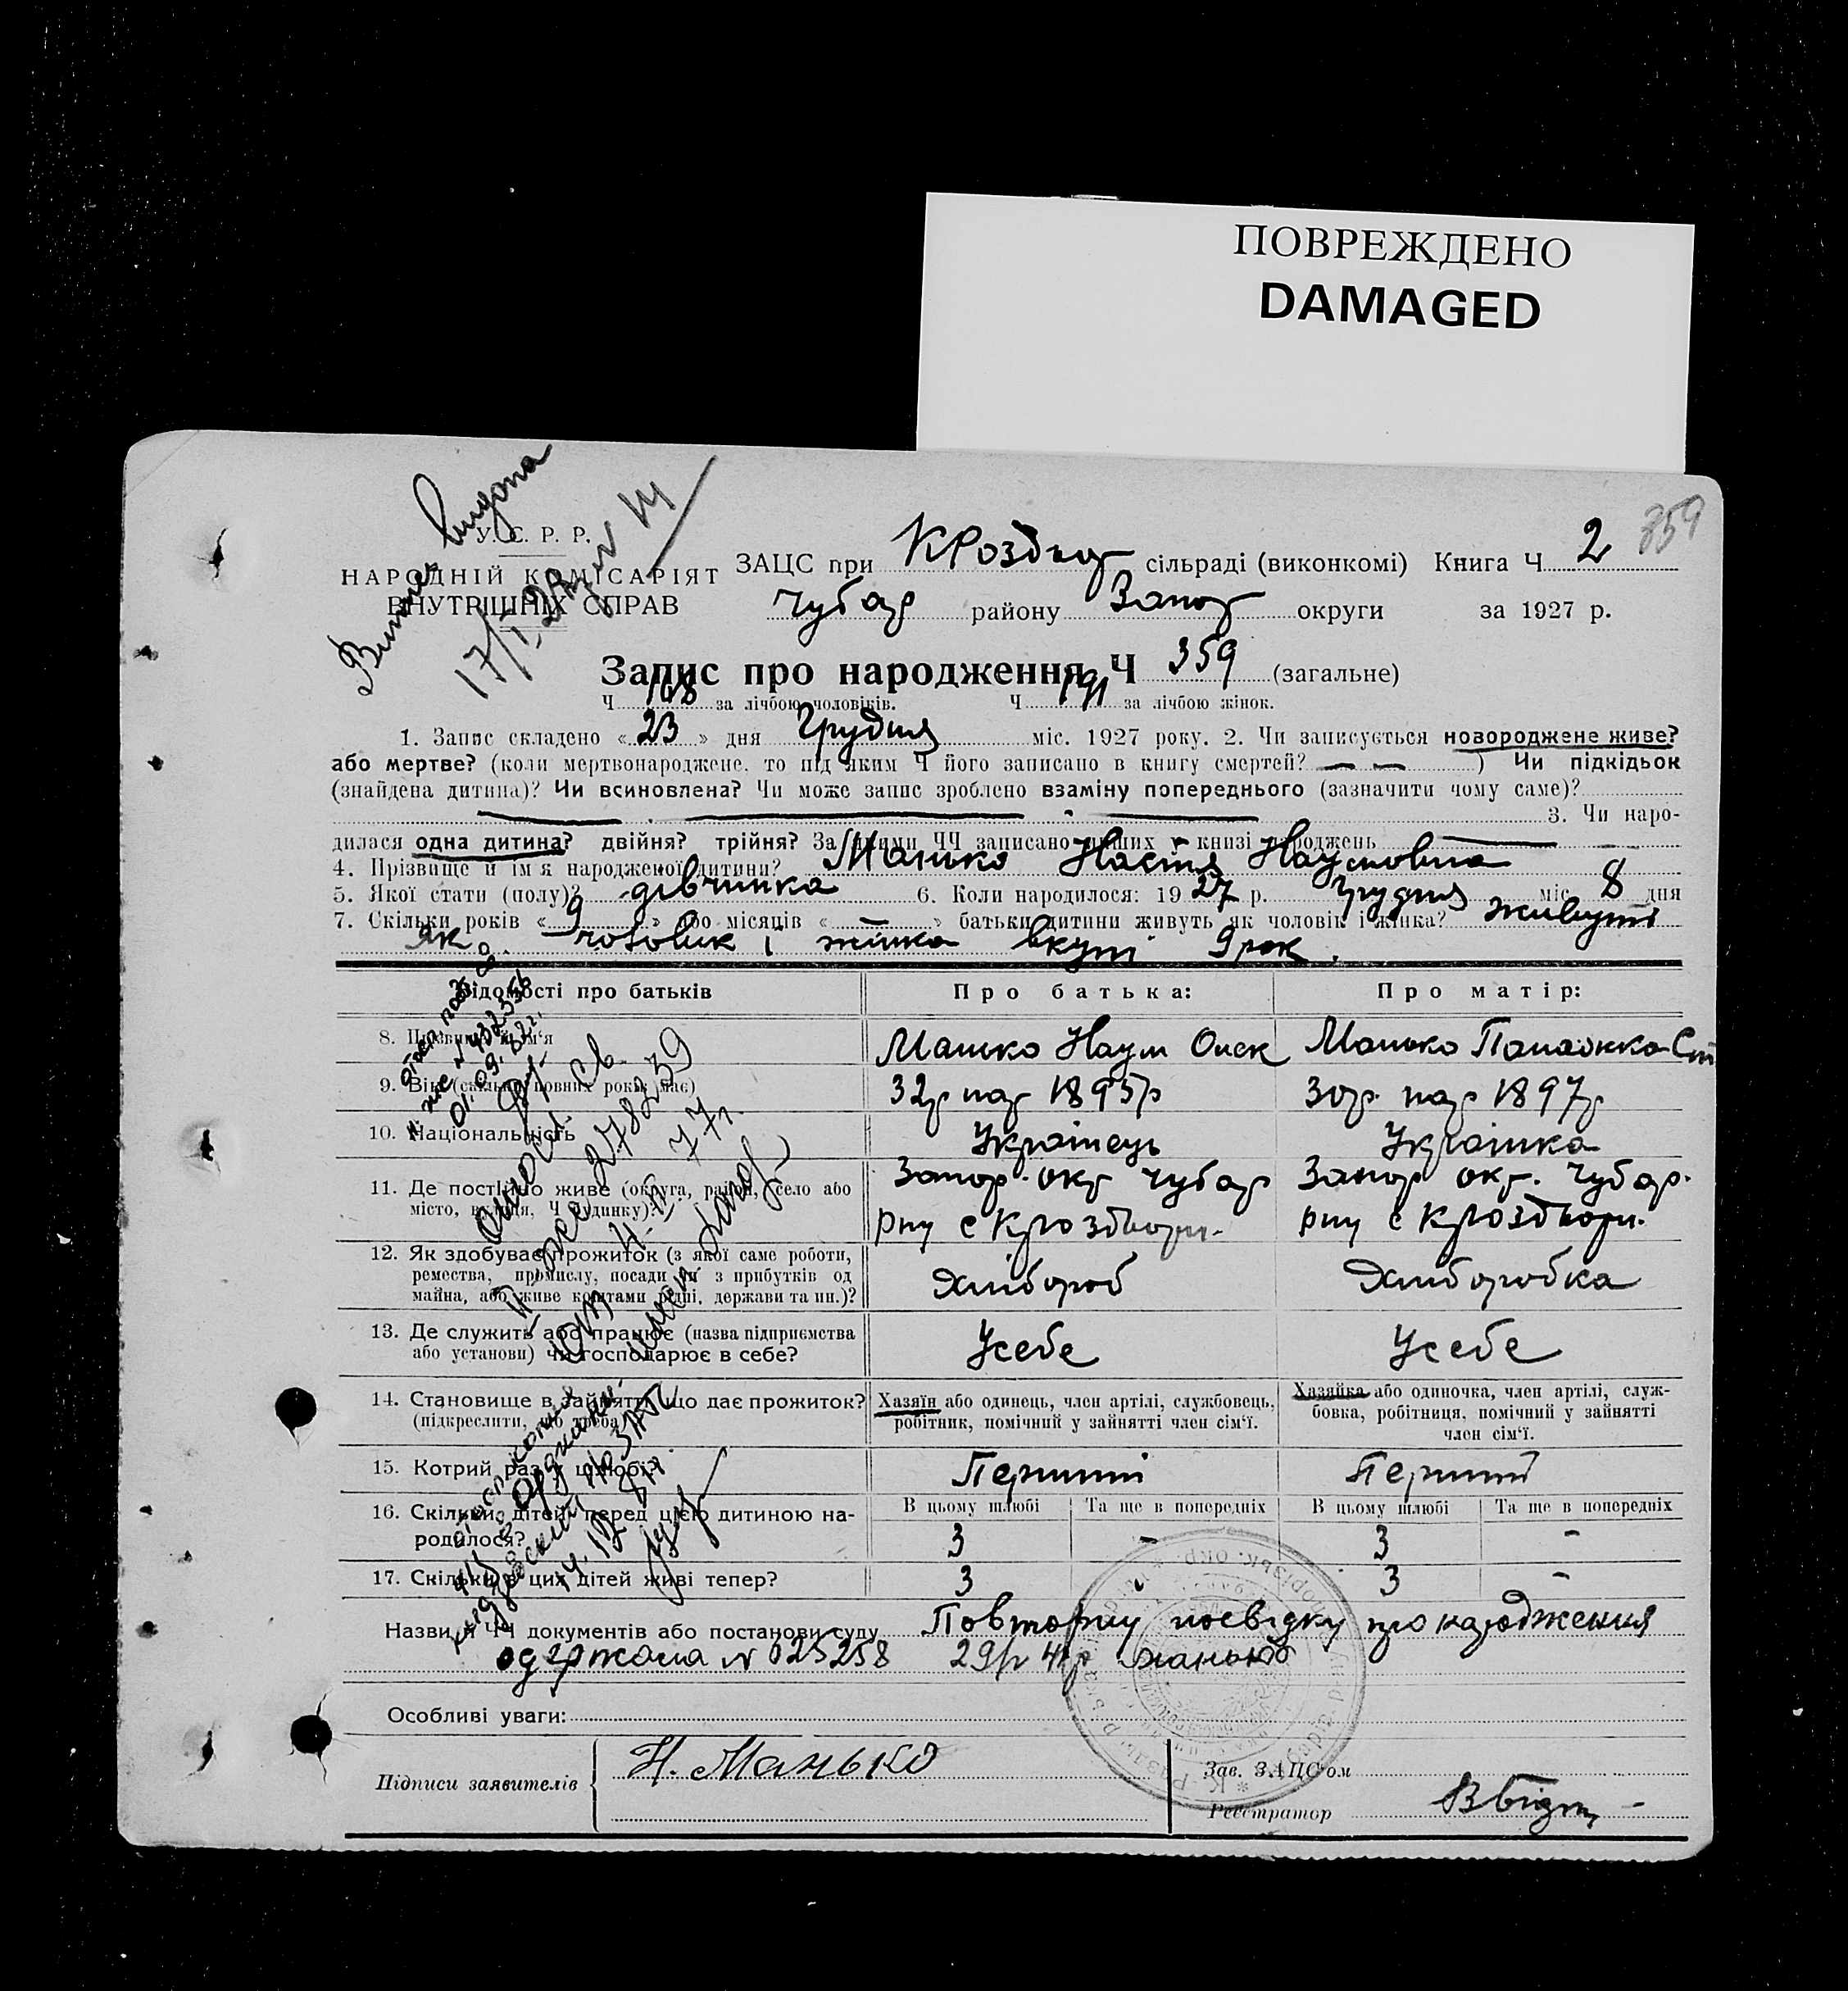 ПОВРЕЖДЕНО
DAMAGED
359
У. С. Р. Р.
НАРОДНІЙ КОМІСАРІЯТ
ВНУТРІШНІХ СПРАВ
ЗАЦС при КРоздор сільраді (виконкомі) Книга Ч 2
Чубар району Запор округи за 1927 р.
Запис про народження Ч 359 (загальне)
Ч 168 за лічбою чоловіків. Ч 191 за лічбою жінок.
1. Запис складено « 23 » дня Грудня міс. 1927 року. 2. Чи записується новороджене живе?
або мертве? (коли мертвонароджене, то під яким Ч його записано в книгу смертей? — — ) Чи підкідьок
(знайдена дитина)? Чи всиновлена? Чи може запис зроблено взаміну попереднього (зазначити чому саме)?
3. Чи наро-
дилася одна дитина? двійня? трійня? За якими ЧЧ записано інших у книзі народжень
4. Прізвище й ім'я народженої дитини? Манько Настя Наумовна
5. Якої стати (полу)? дівчинка 6. Коли народилося: 19 27 р. Грудня міс. 8 дня
7. Скільки років « 9 » або місяців « — » батьки дитини живуть як чоловік і жінка? живуть
як чоловик і жінка вкупі 9 рок.
Відомості про батьків
Про батька:
Про матір:
8. Прізвище й ім'я
Манько Наум Онск
Манько Панаснка Ст
9. Вік (скільки повних років має)
32р нар 1895р
30р. нар 1897р
10. Національність
Українець
Українка
11. Де постійно живе (округа, район, село або
місто, вулиця, Ч будинку)?
Запор. окр Чубар
рну с Кроздвори.
Запор окр. Чубар.
рну с Кроздвори.
12. Як здобуває прожиток (з якої саме роботи,
ремества, промислу, посади чи з прибутків од
майна, або живе коштами рідні, держави та ин.)?
Хлибороб
Хлиборобка
13. Де служить або працює (назва підприємства
або установи) чи господарює в себе?
Усебе
Усебе
14. Становище в зайнятті, що дає прожиток?
(підкреслити, що треба)
Хазяїн або одинець, член артілі, службовець,
робітник, помічний у зайнятті член сім'ї.
Хазяйка або одиночка, член артілі, служ-
бовка, робітниця, помічний у зайнятті
член сім'ї.
15. Котрий раз у шлюбі?
Перший
Перший
16. Скільки дітей перед цією дитиною на-
родилося?
В цьому шлюбі
Та ще в попередніх
В цьому шлюбі
Та ще в попередніх
3 - 3 -
17. Скільки в цих дітей живі тепер?
3 - 3 -
Назви й ЧЧ документів або постанови суду Повторну посвідку про народження
одержала N 025258 29/р 41р Манько
Особливі уваги:
Підписи заявителів
Н. Манько
Зав. ЗАЦС'ом
Реєстратор